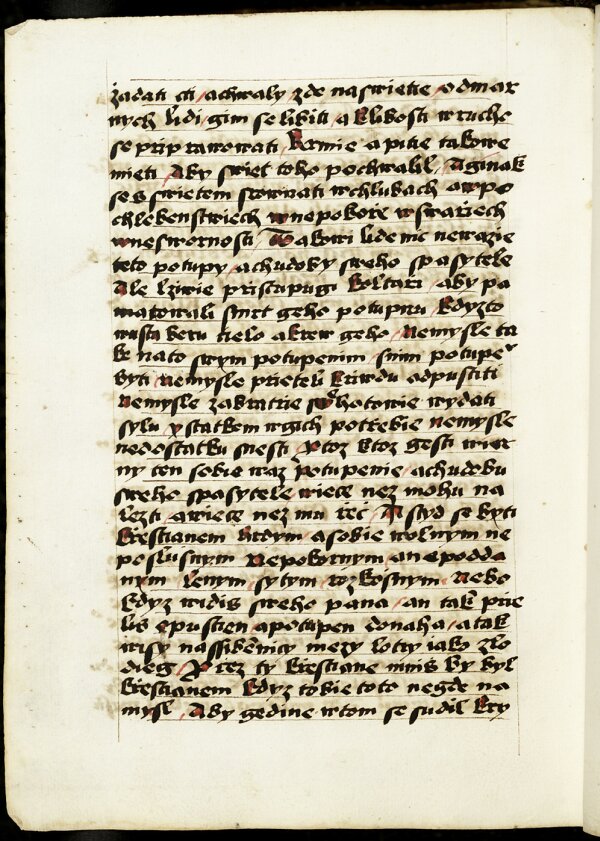 żadati cti / achwaly zde naswietie / odmar
nych lidi / gim se libiti / aklibosti wruche
se priprawowati / Krmie apitie takowe
mieti / Aby swiet toho pochwalil / Aginak
se s swietem srownati wchlubach awpo
chlebenstwiech wnepokoře wswařiech
wneswornosti / Takowi lide nic newazie
teto potupy / achudoby sweho spasytele
Ale lziwie pristupugi koltari / aby pa
matowali smrt geho potupnu / kdyzto
wusta beru tielo akrew geho / Nemysle ta
ke nato swym potupenim / snim potupe
byti / nemysle prieteli kriwdu odpustiti
nemysle zakratcie hotowie wydati
sylu y statkem wgich potřebie nemysle
nedostatku snesti / Protoz ktoz gesti wier
ny ten sobie waz potupenie / achudobu
sweho spasytele wiece nez mohu na
lezti / awiece nez mu řec / A styd se byti
křestianem hrdym / asobie wolnym ne
poslusnym / Nepokornym / anepodda
nym / lenym / sytym / rozkosnym / Nebo
kdyz widis sweho pana / an tak prie
lis opusten apotupen donaha / atak
wisy nassibenicy mezy lotry iako zlo
dieg / Protez ty křestiane mnis by byl
křestianem kdyz tobie toto negde na
mysl / Aby gedine wtom se sudil kry